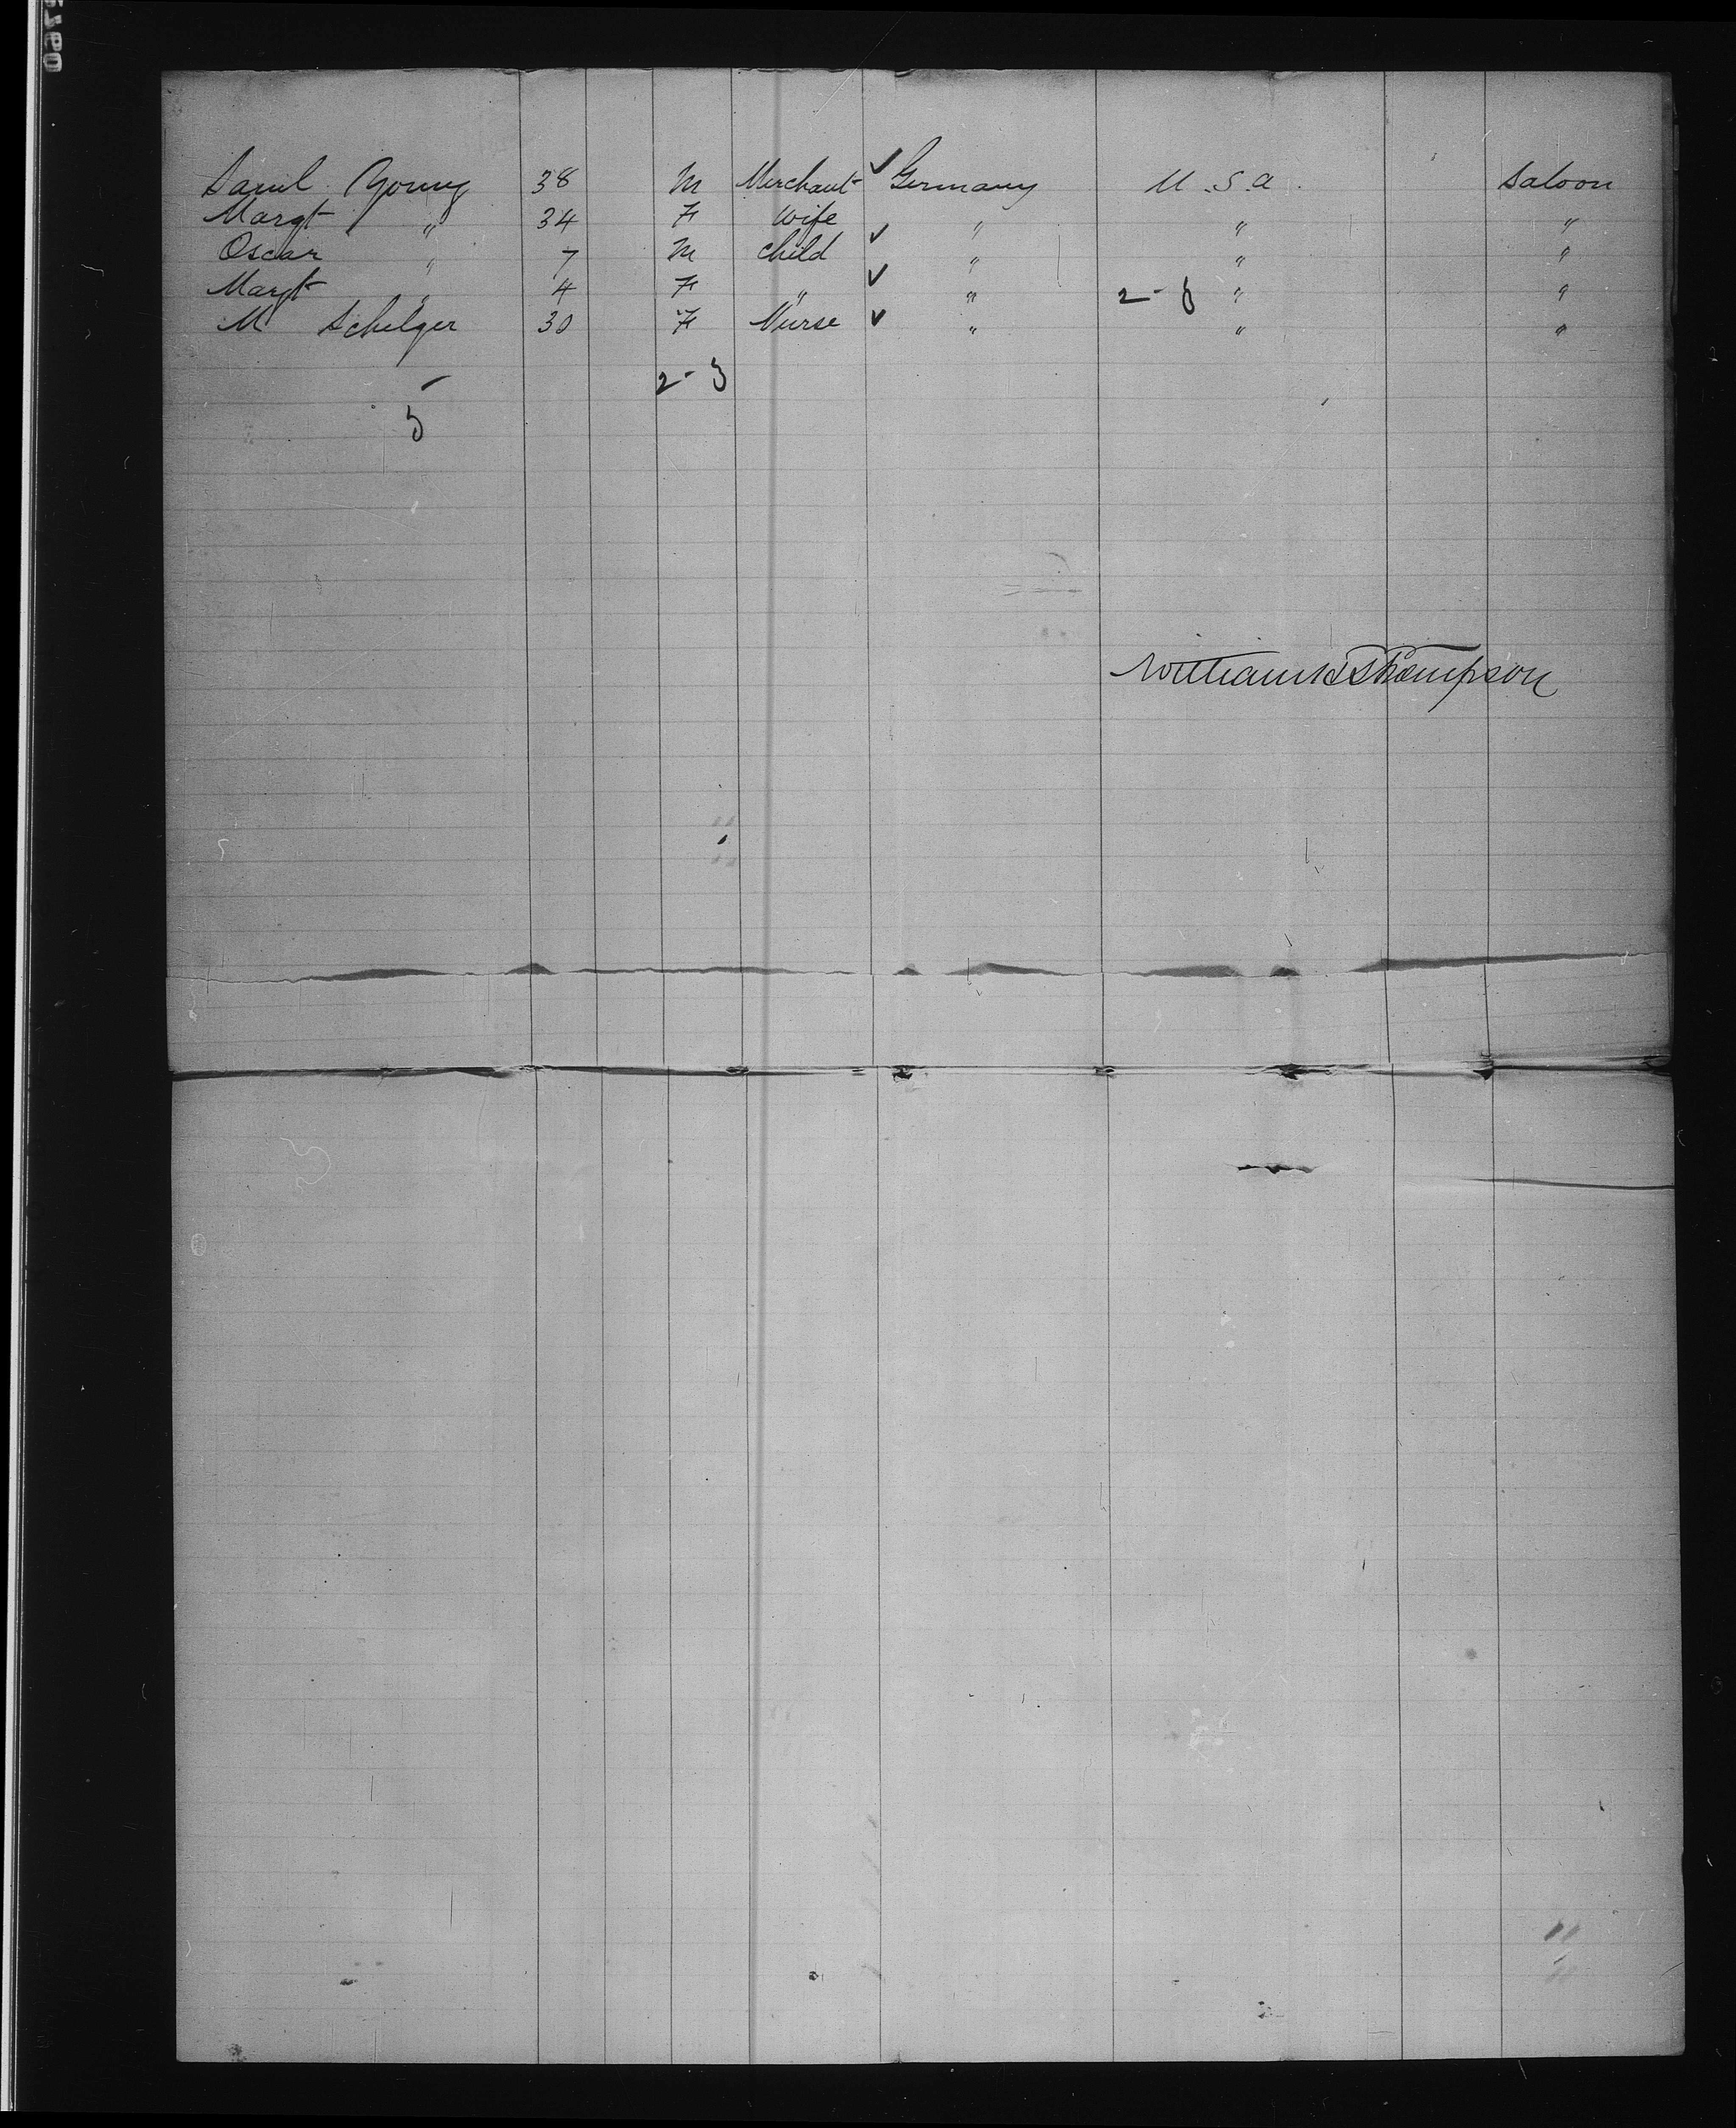 Saml Young 38 M Merchant ✓ Germany U.S.a. Saloon
Margt " 34 F Wife ✓ " " "
Oscar " 7 M child ✓ " " "
Margt " 4 F " " 2-3 " "
M Schelger 30 F Nurse ✓ " " "
2-3
5
William H Thompson